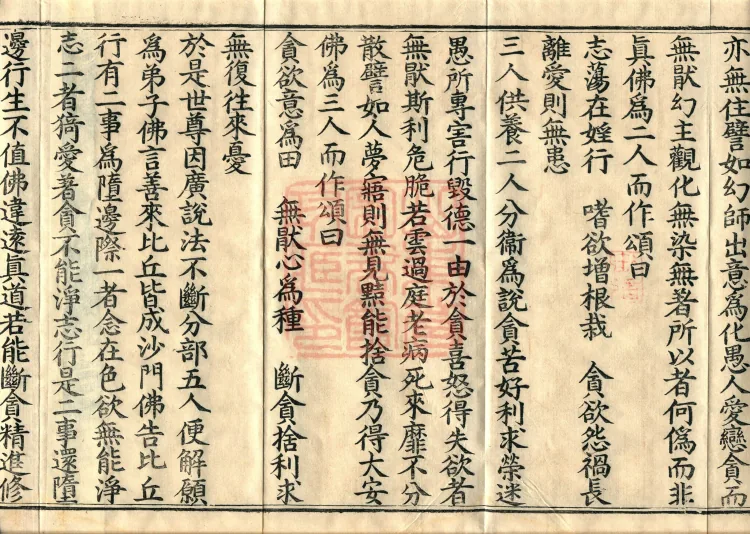 亦無住譬如幻師出意爲化愚人愛戀貪而
無猒幻主觀化無染無著所以者何僞而非
眞佛爲二人而作頌曰
志蕩在婬行　嗜欲增根栽　貪欲怨禍長
離愛則無患
三人供養二人分衞爲說貪苦好利求榮迷
愚所專害行毀德一由於貪喜怒得失欲者
無猒斯利危脆若雲過庭老病死來靡不分
散譬如人夢寤則無見黠能捨貪乃得大安
佛爲三人而作頌曰
貪欲意爲田　無猒心爲種　斷貪捨利求
無復往來憂
於是世尊因廣說法不斷分部五人便解願
爲弟子佛言善來比丘皆成沙門佛告比丘
行有二事爲墮邊際一者念在色欲無能淨
志二者猗愛著貪不能淨志行是二事還墮
邊行生不值佛違遠眞道若能斷貪精進修